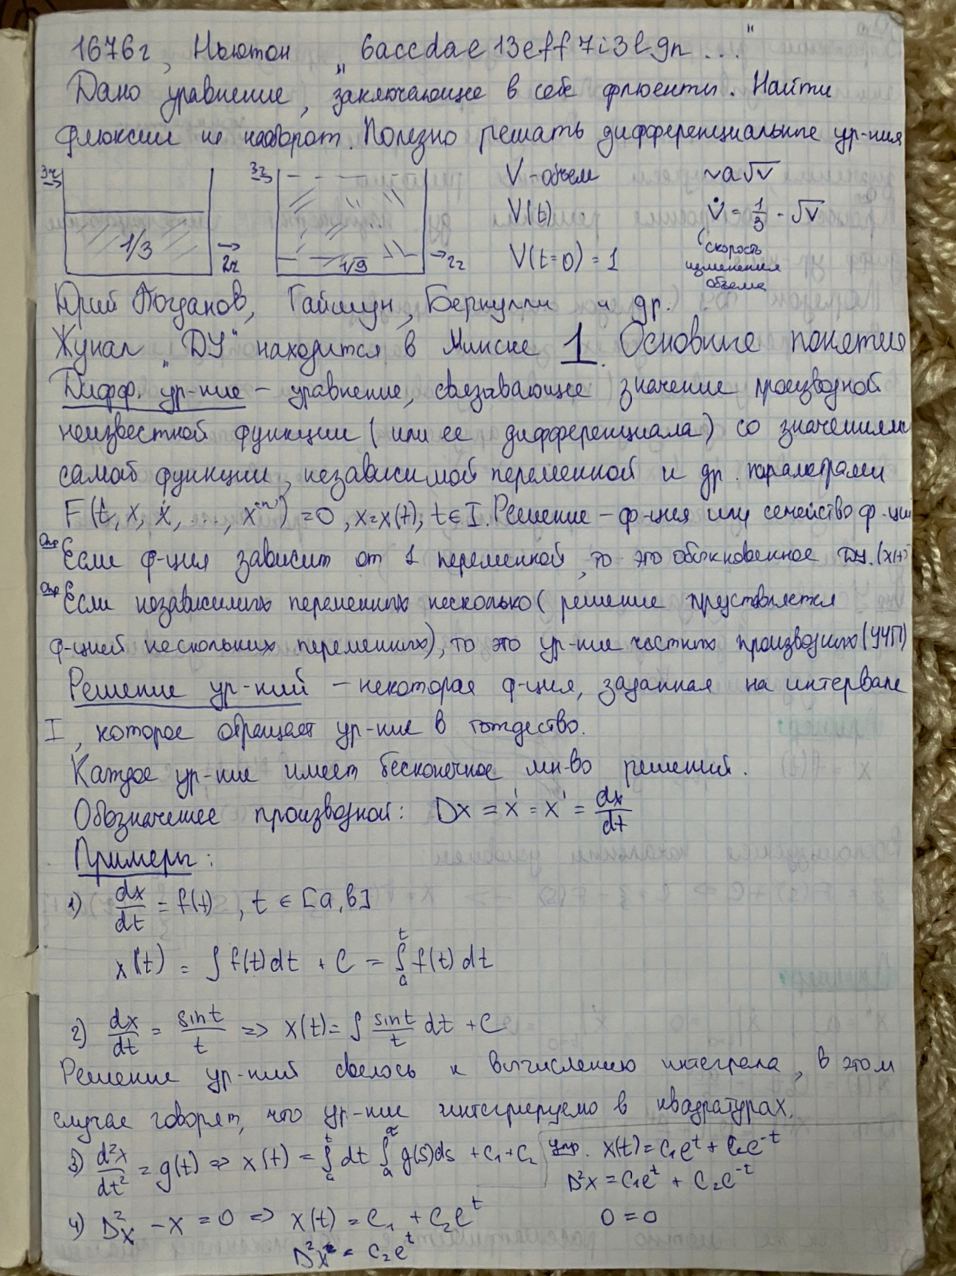 1676г, Ньютон „6accdae13eff7i3l9n..."
Дано уравнение, заключающее в себе флюенты. Найти
флюксии и наоборот. Полезно решать дифференциальные ур-ния
3ч 3ч V-объем ~a√v
1/3 2ч 1/9 2ч V(t) V̇ = 1/3 · √V
V(t=0) = 1 скорость
изменения
объема
Юрий Богданов, Гайшун, Бернулли и др.
Жунал „ДУ" находится в Минске 1. Основные понятия
Дифф. ур-ние – уравнение, связывающее значение производной
неизвестной функции (или ее дифференциала) со значением
самой функции, независимой переменной и др. параметрами
F(t, x, ẋ, ..., x⁽ⁿ⁾) = 0, x=x(t), t ∈ I. Решение – ф-ция или семейство ф-ций
Опр Если ф-ция зависит от 1 переменной, то это обыкновенное ДУ. (x(t)
Опр Если независимых переменных несколько (решение
ф-цией нескольких переменных), то это ур-ние частных производных (УЧП)
Решение ур-ний – некоторая ф-ция, заданная на интервале
I, которое обращает ур-ние в тождество.
Каждое ур-ние имеет бесконечное мн-во решений.
Обозначение производной: Dx = ẋ = x' = dx/dt
Примеры:
1) dx/dt = f(t), t ∈ [a,b]
x(t) = ∫ f(t)dt + C = ∫ₐᵗ f(t)dt
2) dx/dt = sint/t => x(t) = ∫ sint/t dt + C
Решение ур-ний свелось к вычислению интеграла, в этом
случае говорят, что ур-ние интегрируемо в квадратурах.
3) d²x/dt² = g(t) => x(t) = ∫ₐᵗ dt ∫ₐᵗ g(s)ds + C₁ + C₂ упр. x(t) = C₁eᵗ + C₂e⁻ᵗ
D²x = C₁eᵗ + C₂e⁻ᵗ
4) D²x – x = 0 => x(t) = C₁ + C₂eᵗ 0 = 0
D²x = C₂eᵗ